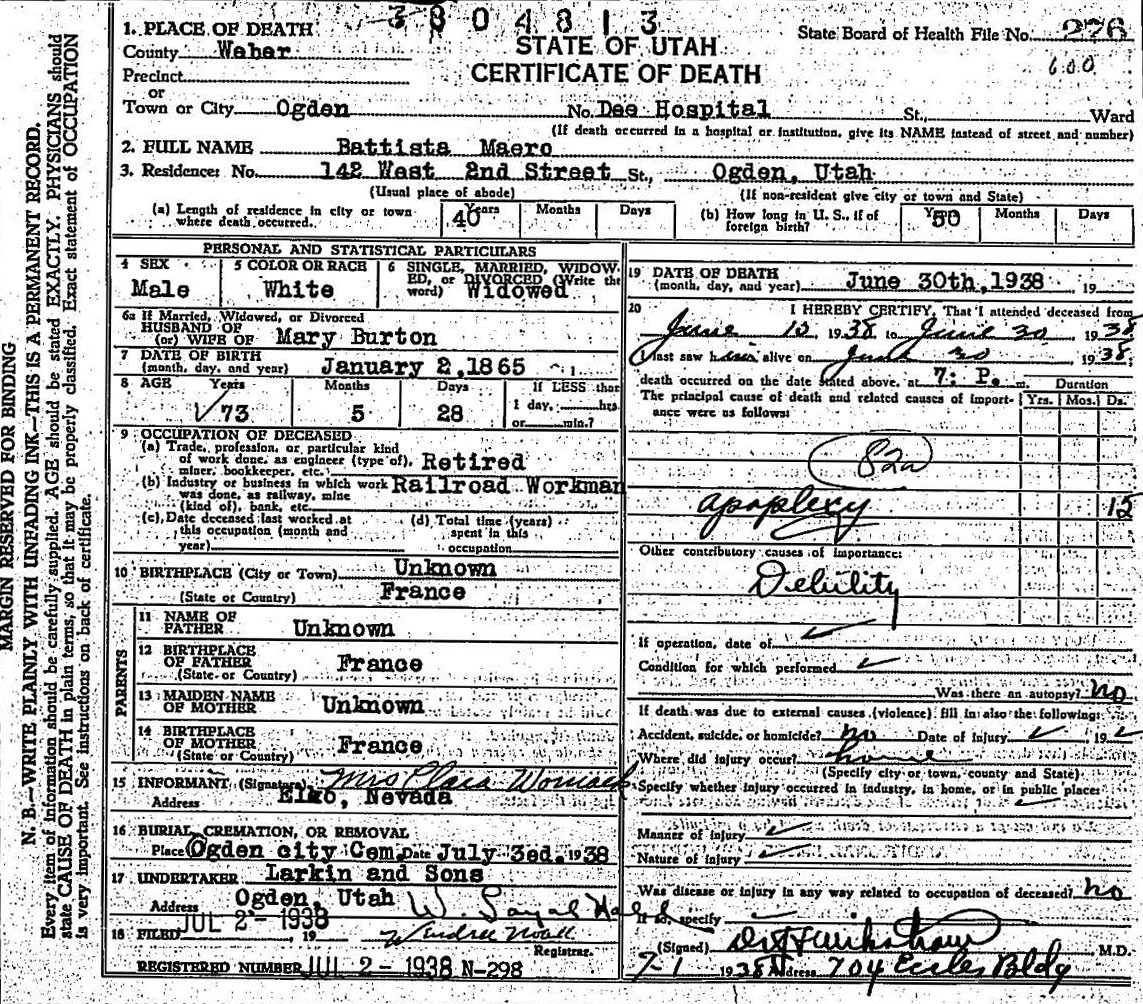 3804813
State Board of Health File No. 276
600
STATE OF UTAH
CERTIFICATE OF DEATH
1. PLACE OF DEATH
County Weber
Precinct
or
Town or City Ogden No. Dee Hospital St., Ward
(If death occurred in a hospital or institution, give its NAME instead of street and number)
2. FULL NAME Battista Maero
3. Residence: No. 142 West 2nd Street St., Ogden, Utah
(Usual place of abode) (If non-resident give city or town and State)
(a) Length of residence in city or town where death occurred. 40 Years Months Days
(b) How long in U. S., if of foreign birth? 50 Years Months Days
PERSONAL AND STATISTICAL PARTICULARS
4 SEX Male
5 COLOR OR RACE White
6 SINGLE, MARRIED, WIDOWED, or DIVORCED (Write the word) Widowed
6a If Married, Widowed, or Divorced
HUSBAND OF
(or) WIFE OF Mary Burton
7 DATE OF BIRTH
(month, day, and year) January 2, 1865
8 AGE Years 73 Months 5 Days 28
If LESS than
1 day, hrs.
or min.?
9 OCCUPATION OF DECEASED
(a) Trade, profession, or particular kind
of work done, as engineer (type of), Retired
miner, bookkeeper, etc.
(b) Industry or business in which work Railroad Workman
was done, as railway, mine
(kind of), bank, etc.
(c) Date deceased last worked at
this occupation (month and
year)
(d) Total time (years)
spent in this
occupation
10 BIRTHPLACE (City or Town) Unknown
(State or Country) France
PARENTS
11 NAME OF
FATHER Unknown
12 BIRTHPLACE
OF FATHER France
(State or Country)
13 MAIDEN NAME
OF MOTHER Unknown
14 BIRTHPLACE
OF MOTHER France
(State or Country)
15 INFORMANT (Signature) Mrs Clara Womack
Address Elko, Nevada
16 BURIAL, CREMATION, OR REMOVAL
Place Ogden city Cem. Date July 3ed. 1938
17 UNDERTAKER Larkin and Sons
Address Ogden, Utah
JUL 2 - 1938
18 FILED 19
Registrar.
REGISTERED NUMBER JUL 2 - 1938 N-298
19 DATE OF DEATH
(month, day, and year) June 30th, 1938 19
20 I HEREBY CERTIFY, That I attended deceased from
June 15 1938 to June 30 1938
I last saw him alive on June 30 1938
death occurred on the date stated above, at 7: P. m.
Duration
The principal cause of death and related causes of importance were as follows: Yrs. Mos. Ds.
82a
apoplexy 15
Other contributory causes of importance:
Debility
If operation, date of ✓
Condition for which performed ✓
Was there an autopsy? no
If death was due to external causes (violence) fill in also the following:
Accident, suicide, or homicide? no Date of injury ✓ 19 ✓
Where did injury occur? home
(Specify city or town, county and State)
Specify whether injury occurred in industry, in home, or in public place:
✓
Manner of injury ✓
Nature of injury ✓
Was disease or injury in any way related to occupation of deceased? no
If so, specify
(Signed) M.D.
7-1 1938 Address 704 Eccles Bldg
MARGIN RESERVED FOR BINDING
N. B.—WRITE PLAINLY WITH UNFADING INK—THIS IS A PERMANENT RECORD.
Every item of information should be carefully supplied. AGE should be stated EXACTLY. PHYSICIANS should
state CAUSE OF DEATH in plain terms, so that it may be properly classified. Exact statement of OCCUPATION
is very important. See instructions on back of certificate.